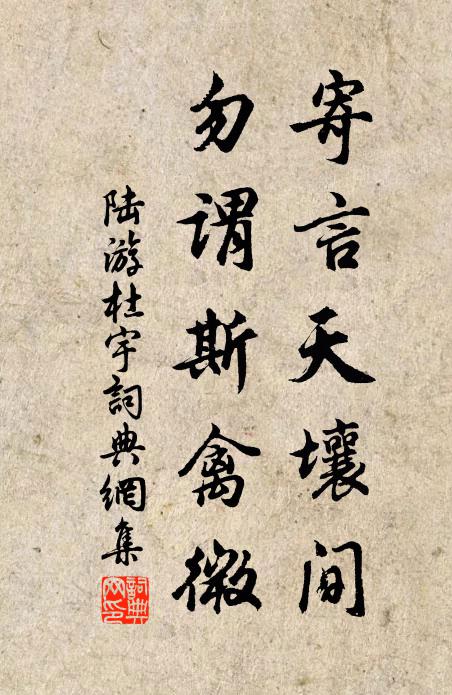 寄言天壤间
勿谓斯禽微
陆游杜宇詞典網集
詞典网印